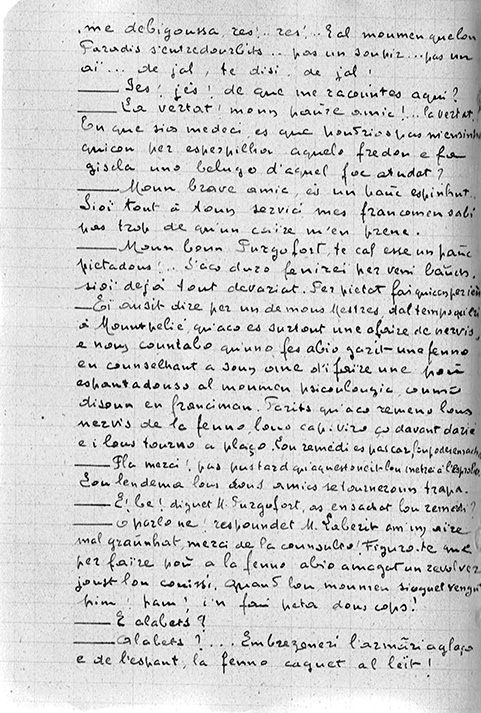 me debigoussa, res! res! E al moumen que lou
Paradis s'entredourbits... pas un soupir... pas un
aï... de jal, te disi! de jal!
— Jes! jès! de que me racountes aqui?
— La vertat! moun paure amic!... la vertat.
En que sios medeci, es que pourrios pas m'ensinha
quicon per esperpilha aquelo fredou e fa
giscla uno belugo d'aquel foc atudat?
— Moun brave amic, es un pauc espinhut...
Sioi tout à toun servici mes francomen sabi
pas trop de qu'un caire m'en prene.
— Moun boun Purgofort, te cal esse un pauc
pietadous!... S'aco duro fenirei per veni baucn.
sioi dejà tout devariat. Per pietat fai quicon per ieu
— Ei ausit dire per un de mous Mestres, dal temps qu'èri
à Mountpelié, qu'aco es surtout une afaire de nervis,
e nous countabo qu'uno fes abio garit uno fenno
en counselhant a soun ome d'i faire une poou
espantadouso al moumen psicoulougic, coumo
disoun en franciman. Parits qu'aco remeno lous
nervis de la fenno, lous capi-viro ço davant darie
e i lous tourno a plaço. Lou remèdi es pas car, poudès ensacha
— Pla merci! pas pus tard qu'aqueste ser lou metrai à l'esprobo.
Lou lendema lous dous amics se tournèroun trapa.
— E! be! diguet M. Purgofort, as ensachat lou remèdi?
— O parlo-ne! respoundet M. Laberit am'un aire
mal graünhat, merci de la counsulto! Figuro-te que
per faire poou a la fenno abio amagat un revolver
joust lou couissi, quand lou moumen siaguet vengut
pim! pam! i'n fau peta dous cops!
— E alabets?
— Alabets?.... Embrezeneri l'armàri a glaço
e de l'espant, la fenno caguet al leït!